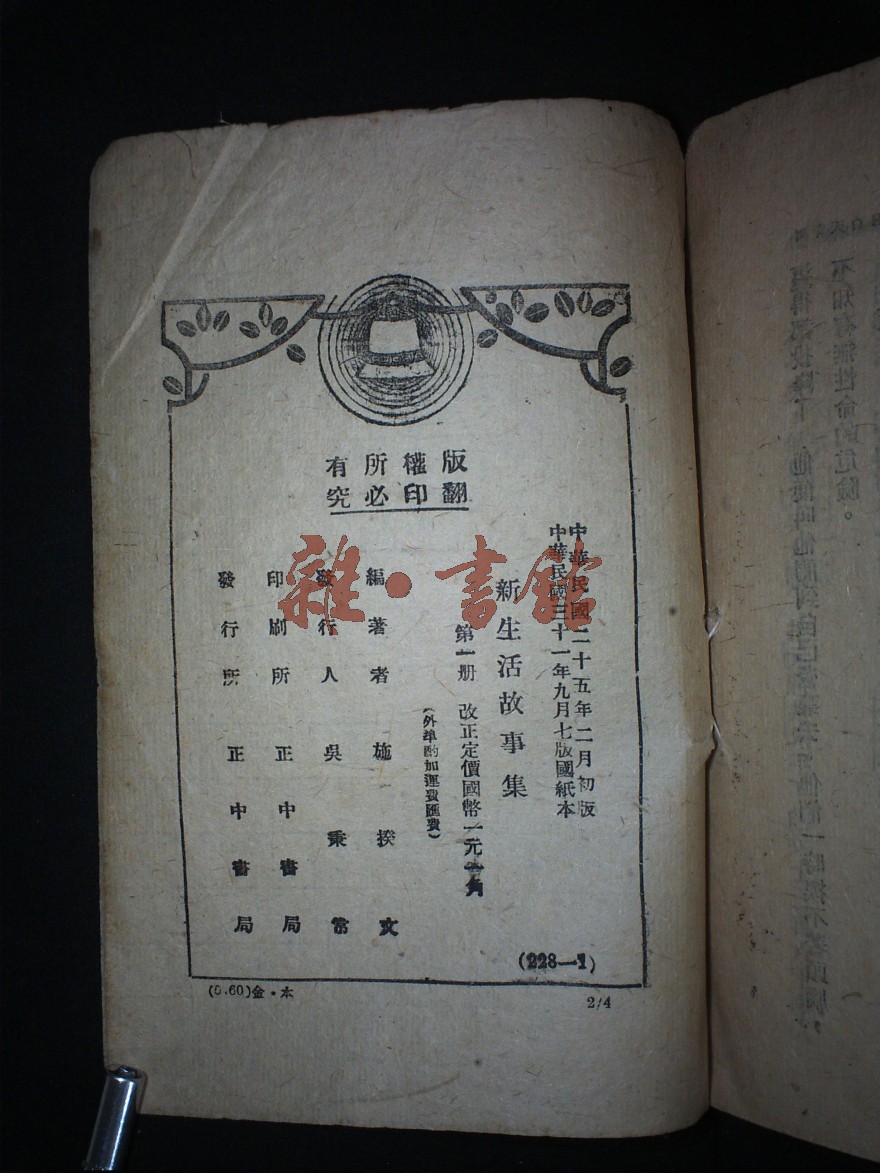 版權所有
翻印必究
中華民國二十五年二月初版
中華民國三十一年九月七版國紙本
新生活故事集
第一册 改正定價國幣一元 角
(外準酌加運費匯費)
編著者 施揆文
發行人 吳秉常
印刷所 正中書局
發行所 正中書局
(228—1)
(0.60)金·本
2/4
雜·書館
不知有無性命的危險。